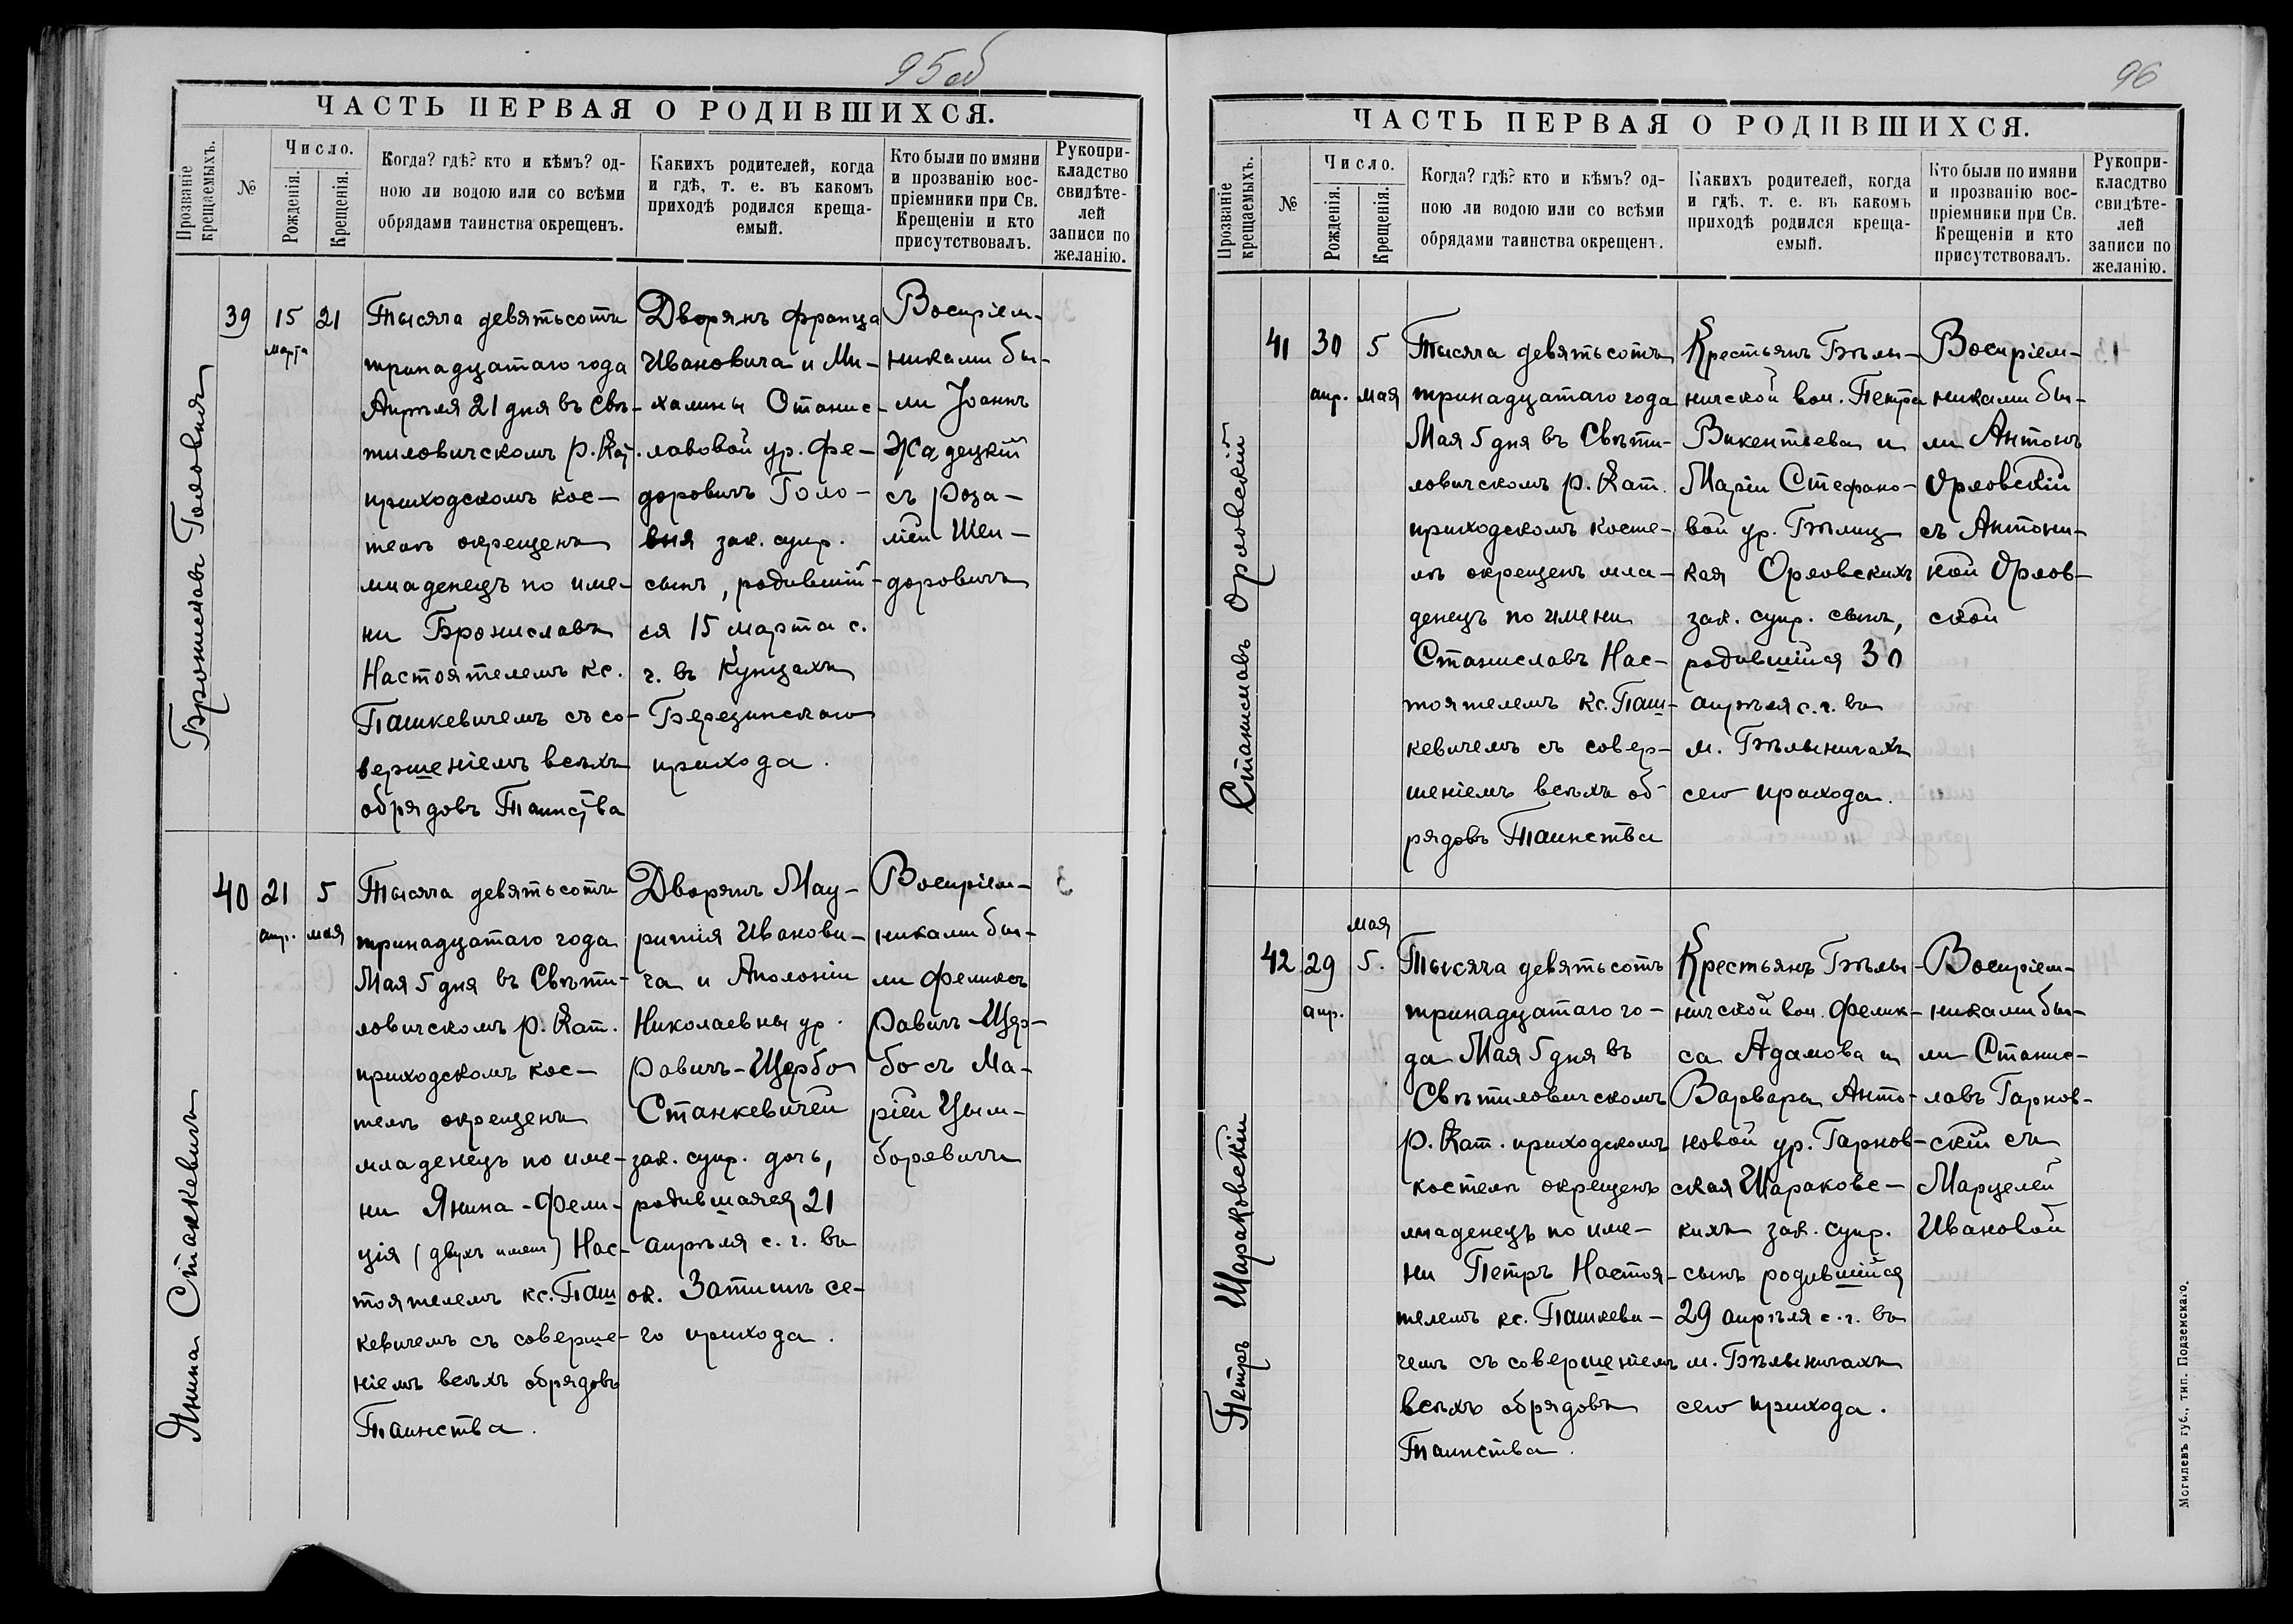 95 об
ЧАСТЬ ПЕРВАЯ О РОДИВШИХСЯ.
Прозваніе крещаемыхъ.
№
Число.
Рожденія.
Крещенія.
Когда? гдѣ? кто и кѣмъ? од-
ною ли водою или со всѣми
обрядами таинства окрещенъ.
Какихъ родителей, когда
и гдѣ, т. е. въ какомъ
приходѣ родился креща-
емый.
Кто были по имяни
и прозванію вос-
пріемники при Св.
Крещеніи и кто
присутствовалъ.
Рукопри-
кладство
свидѣте-
лей
записи по
желанію.
Брониславъ Головня
39
15
марта
21
Тысяча девятьсотъ
тринадцатаго года
Апрѣля 21 дня въ Свѣ-
тиловичскомъ р. Кат.
приходскомъ кос-
телѣ окрещенъ
младенецъ по име-
ни Брониславъ
Настоятелемъ кс.
Пашкевичемъ съ со-
вершеніемъ всѣхъ
обрядовъ Таинства
Дворянъ Франца
Ивановича и Ми-
халины Станис-
лавовой ур. Фе-
доровичъ Голо-
вня зак. супр.
сынъ, родившій-
ся 15 марта с.
г. въ Купцахъ
Березинскаго
прихода.
Воспріем-
никами бы-
ли Іоаннъ
Жадецкій
съ Роза-
ліей Шен-
доровичъ
Янина Станкевичъ
40
21
апр.
5
мая
Тысяча девятьсотъ
тринадцатаго года
Мая 5 дня въ Свѣти-
ловичскомъ р. Кат.
приходскомъ кос-
телѣ окрещенъ
младенецъ по име-
ни Янина-Фели-
ція (двухъ именъ) Нас-
тоятелемъ кс. Паш
кевичемъ съ соверше-
ніемъ всѣхъ обрядовъ
Таинства.
Дворянъ Мау-
риція Иванови-
ча и Аполоніи
Николаевны ур.
Равичъ-Щербо
Станкевичей
зак. супр. дочь,
родившаяся 21
апрѣля с. г. въ
ок. Затишъ се-
го прихода.
Воспріем-
никами бы-
ли Феликсъ
Равичъ-Щер-
бо съ Ма-
ріей Цым-
боревичъ
96
ЧАСТЬ ПЕРВАЯ О РОДИВШИХСЯ.
Прозваніе крещаемыхъ.
№
Число.
Рожденія.
Крещенія.
Когда? гдѣ? кто и кѣмъ? од-
ною ли водою или со всѣми
обрядами таинства окрещенъ.
Какихъ родителей, когда
и гдѣ, т. е. въ какомъ
приходѣ родился креща-
емый.
Кто были по имяни
и прозванію вос-
пріемники при Св.
Крещеніи и кто
присутствовалъ.
Рукопри-
класдтво
свидѣте-
лей
записи по
желанію.
Станиславъ Орловскій
41
30
апр.
5
мая
Тысяча девятьсотъ
тринадцатаго года
Мая 5 дня въ Свѣти-
ловичскомъ р. Кат.
приходскомъ косте-
лѣ окрещенъ мла-
денецъ по имени
Станиславъ Нас-
тоятелемъ кс. Паш-
кевичемъ съ совер-
шеніемъ всѣхъ об-
рядовъ Таинства
Крестьянъ Бѣлы-
ничской вол. Петра
Викентьева и
Маріи Стефано-
вой ур. Бѣлиц-
кая Орловскихъ
зак. супр. сынъ,
родившійся 30
апрѣля с. г. въ
м. Бѣлыничахъ
сего прихода.
Воспріем-
никами бы-
ли Антонъ
Орловскій
съ Антони-
ной Орлов-
ской
Петръ Шараковскій
42
29
апр.
мая
5.
Тысяча девятьсотъ
тринадцатаго го-
да Мая 5 дня въ
Свѣтиловичскомъ
р. Кат. приходскомъ
костелѣ окрещенъ
младенецъ по име-
ни Петръ Настоя-
телемъ кс. Пашкеви-
чемъ съ совершеніемъ
всѣхъ обрядовъ
Таинства.
Крестьянъ Бѣлы-
ничской вол. Фелик-
са Адамова и
Варвары Анто-
новой ур. Тарнов-
ская Шараковс-
кихъ зак. супр.
сынъ родившійся
29 апрѣля с. г. въ
м. Бѣлыничахъ
сего прихода.
Воспріем-
никами бы-
ли Станис-
лавъ Тарнов-
скій съ
Марцелей
Ивановой
Могилевъ губ., тип. Подземскаго.